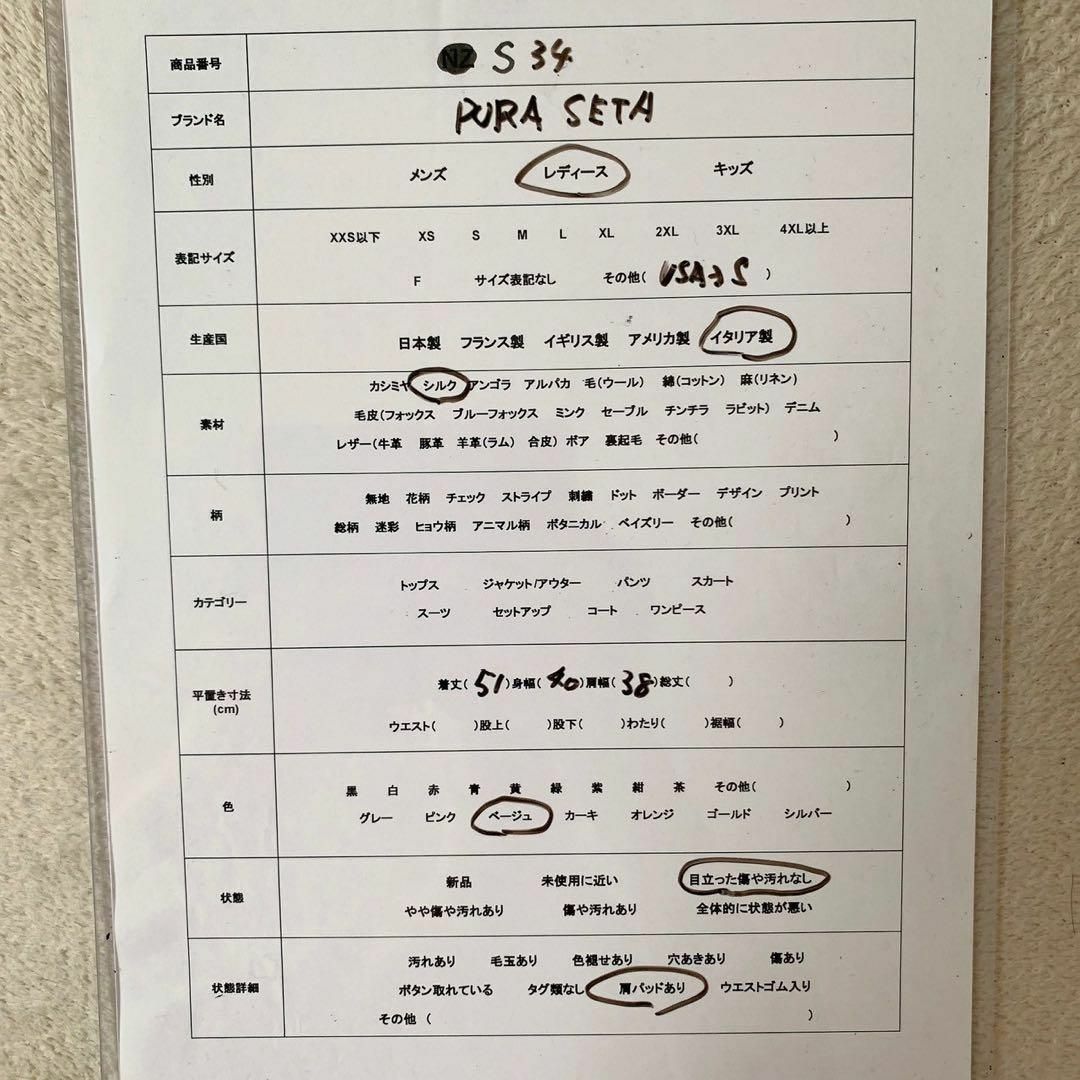 商品番号 NZ S 34
ブランド名 PURA SETA
性別 メンズ レディース キッズ
XXS以下 XS S M L XL 2XL 3XL 4XL以上
表記サイズ
F サイズ表記なし その他( USA→S )
生産国 日本製 フランス製 イギリス製 アメリカ製 イタリア製
カシミヤ シルク アンゴラ アルパカ 毛(ウール) 綿(コットン) 麻(リネン)
素材 毛皮(フォックス ブルーフォックス ミンク セーブル チンチラ ラビット) デニム
レザー(牛革 豚革 羊革(ラム) 合皮) ボア 裏起毛 その他( )
柄 無地 花柄 チェック ストライプ 刺繍 ドット ボーダー デザイン プリント
総柄 迷彩 ヒョウ柄 アニマル柄 ボタニカル ペイズリー その他( )
カテゴリー トップス ジャケット/アウター パンツ スカート
スーツ セットアップ コート ワンピース
平置き寸法 (cm) 着丈( 51 )身幅( 40 )肩幅( 38 )総丈( )
ウエスト( )股上( )股下( )わたり( )裾幅( )
色 黒 白 赤 青 黄 緑 紫 紺 茶 その他( )
グレー ピンク ベージュ カーキ オレンジ ゴールド シルバー
状態 新品 未使用に近い 目立った傷や汚れなし
やや傷や汚れあり 傷や汚れあり 全体的に状態が悪い
汚れあり 毛玉あり 色褪せあり 穴あきあり 傷あり
状態詳細 ボタン取れている タグ類なし 肩パッドあり ウエストゴム入り
その他 ( )